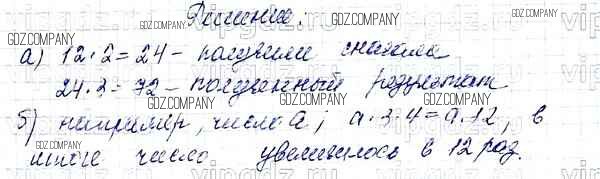 Решение:
а) 12·2=24 - получили сначала
24·3=72 - полученный результат
б) например, число а; а·3·4=а·12, в
итоге число увеличилось в 12 раз.
GDZ.COMPANY
GDZ.COMPANY
GDZ.COMPANY
GDZ.COMPANY
GDZ.COMPANY
GDZ.COMPANY
GDZ.COMPANY
GDZ.COMPANY
GDZ.COMPANY